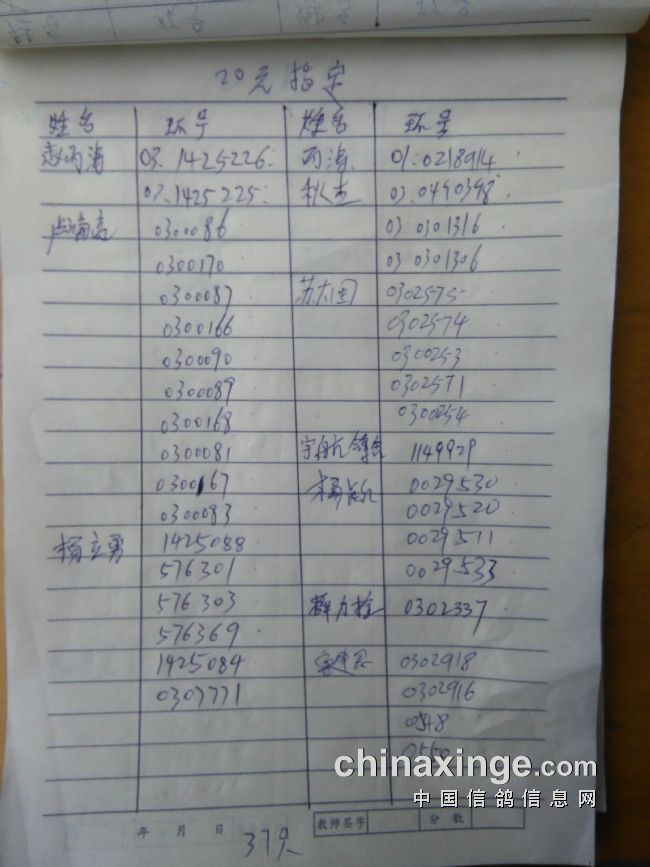 20元指定
姓名 环号 姓名 环号
赵丙海 03.1425226 丙海 01.0218914
03.1425225 秋生 03.0490398
卢海亮 0300086 03 0301316
0300170 03 0301306
0300087 苏太国 0302575
0300166 0302574
0300090 0300253
0300089 0302571
0300168 0300254
0300081 宇航鸽舍 1149929
0300167 0029530
0300083 0029520
杨立勇 1425088 0029511
576301 0029533
576303 群力拴 0302337
576369
1425084 0302918
0303771 0302916
0548
0550
chinaxinge.com
中国信鸽信息网
年 月 日 教师签字 分数
37只